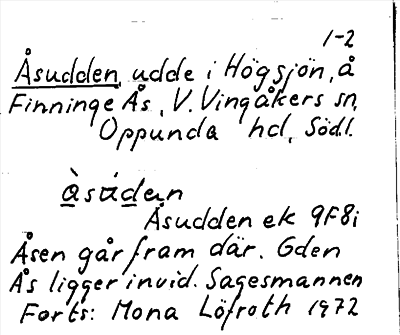 1-2
Åsudden, udde i Högsjön, å
Finninge Ås, V. Vingåkers sn,
Oppunda hd, Södl.
àsúdən
Åsudden ek 9F8i
Åsen går fram där. Gden
Ås ligger invid. Sagesmannen
Forts: Mona Löfroth 1972